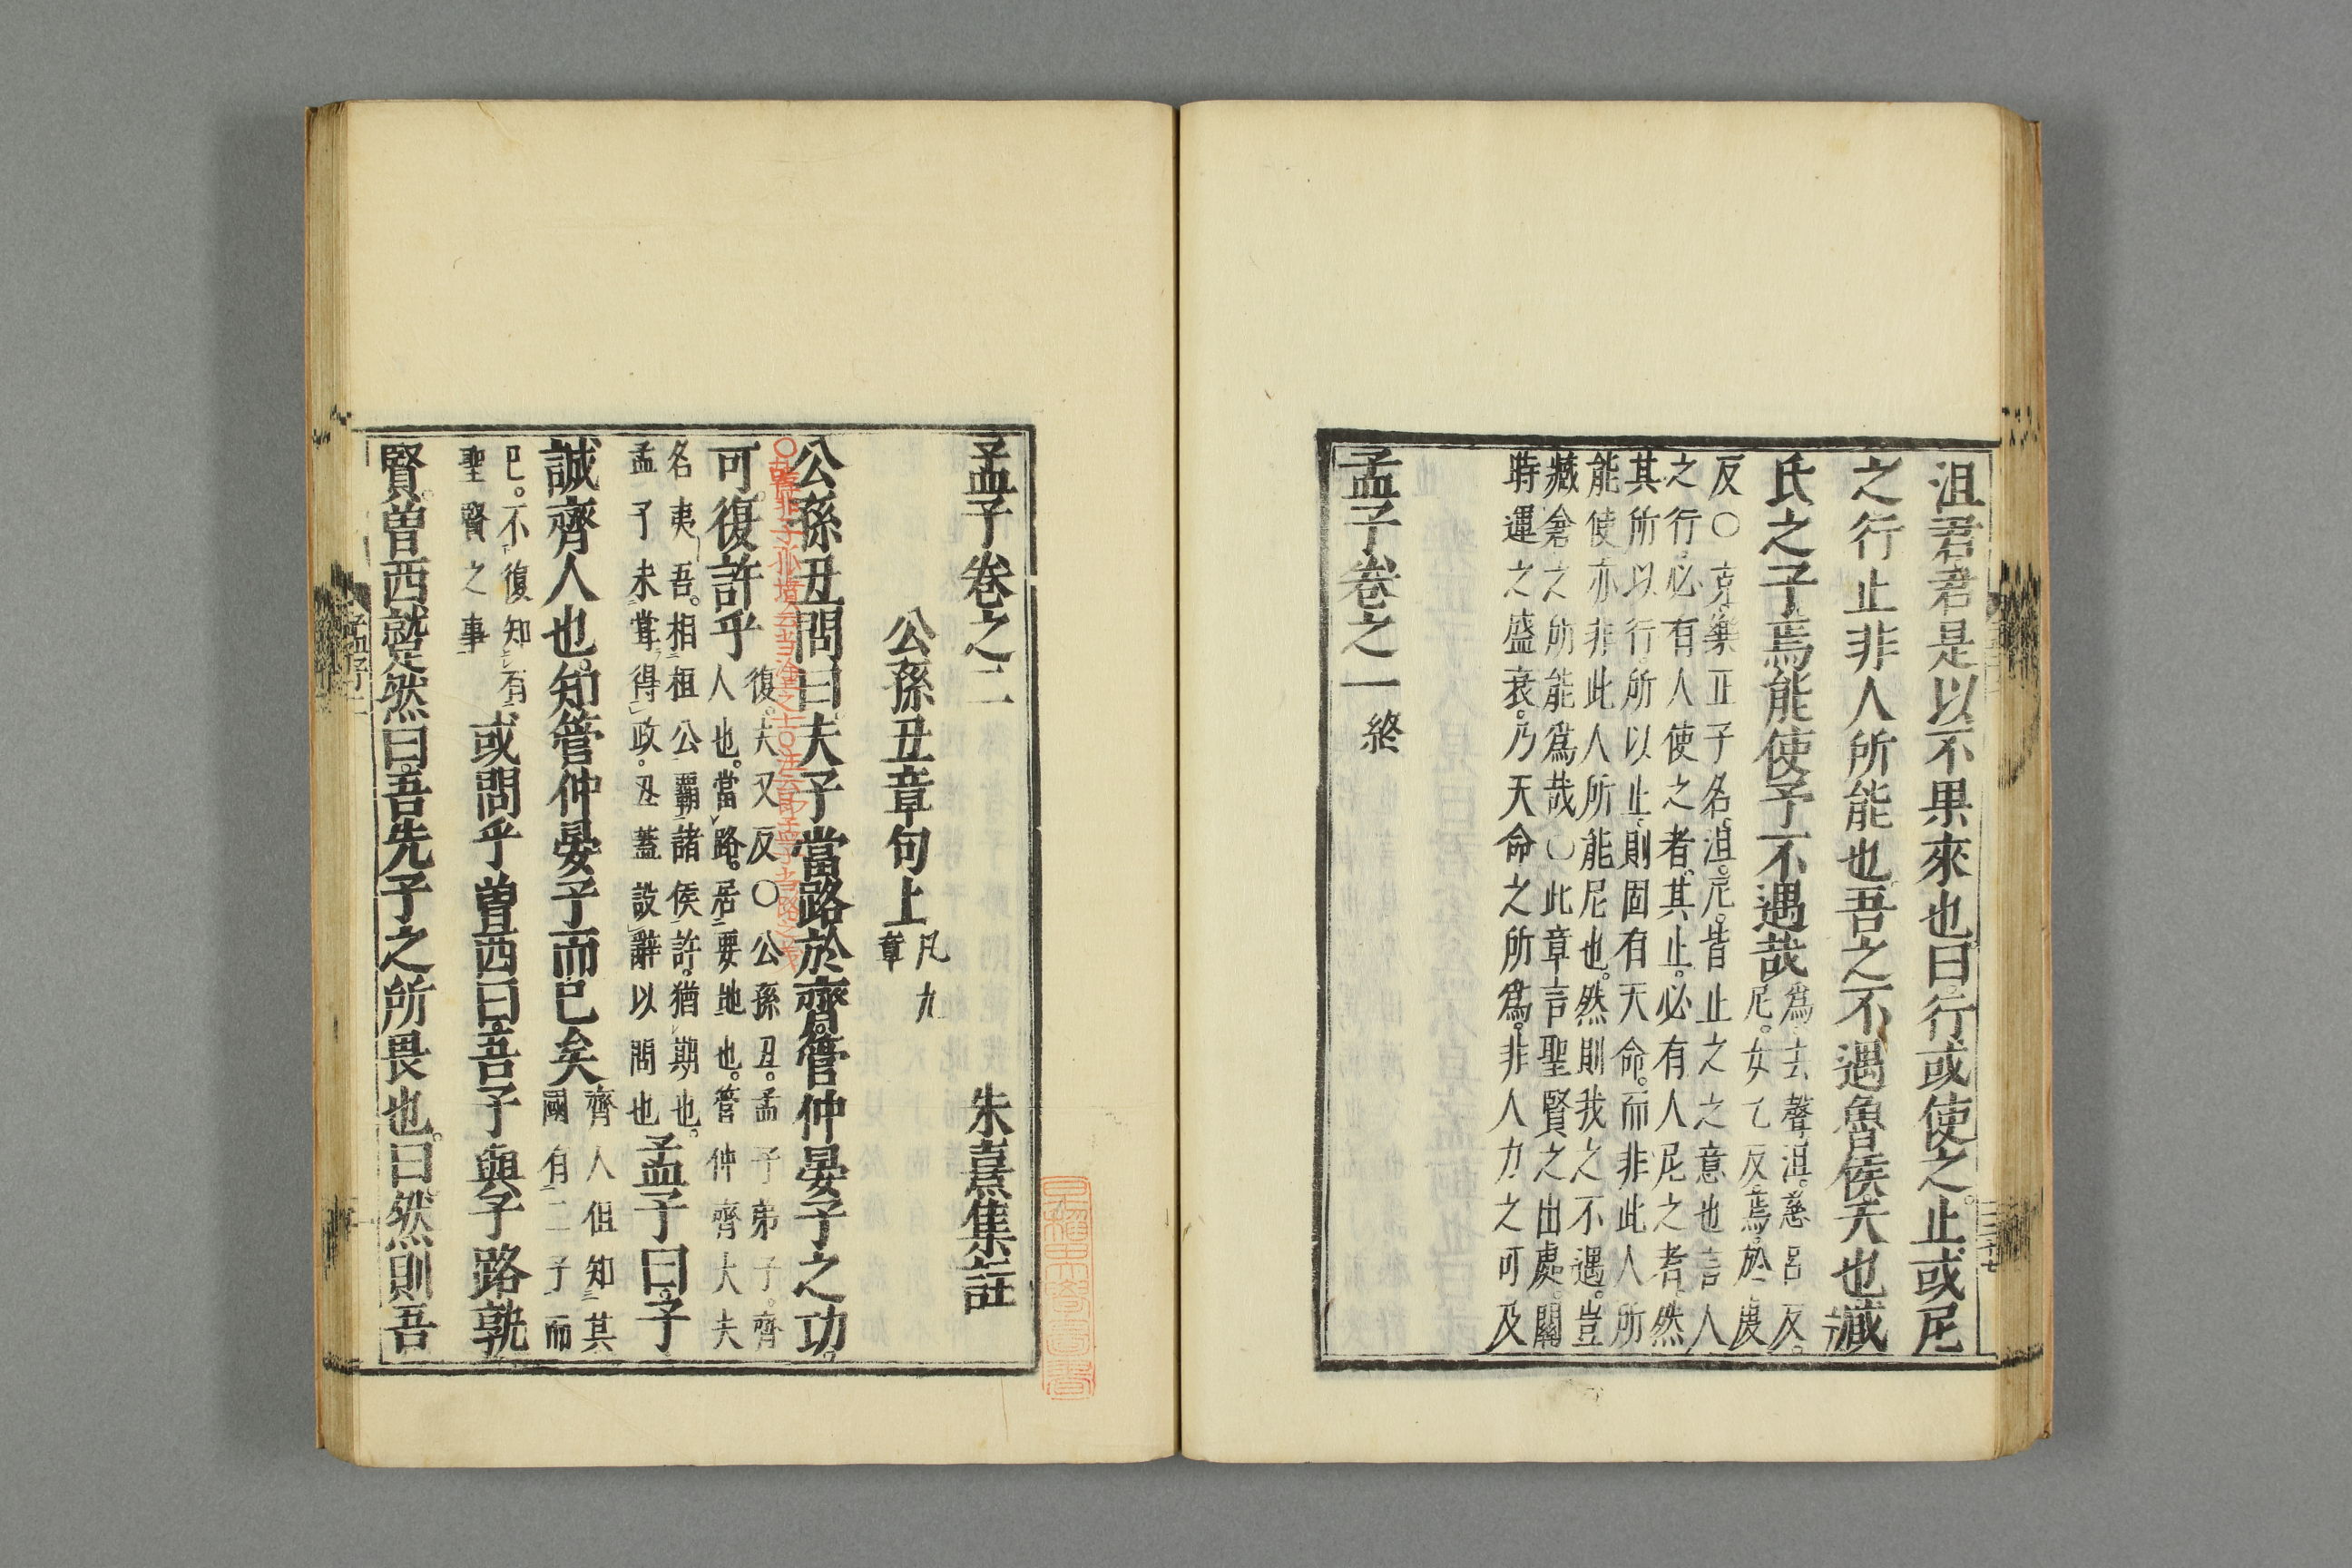 沮君君是以不果來也曰行或使之止或尼
之行止非人所能也吾之不遇魯侯天也臧
氏之子焉能使予不遇哉
爲去聲沮慈呂反
尼女乙反焉於虔
反○克樂正子名沮尼皆止之之意也言人
之行必有人使之者其止必有人尼之者然
其所以行所以止則固有天命而非此人所
能使亦非此人所能尼也然則我之不遇豈
臧倉之所能爲哉○此章言聖賢之出處關
時運之盛衰乃天命之所爲非人力之可及
孟子卷之一終
孟子卷之二 朱熹集註
公孫丑章句上
凡九
章
公孫丑問曰夫子當路於齊管仲晏子之功
可復許乎
復夫又反○公孫丑孟子弟子齊
人也當路居要地也管仲齊大夫
名夷吾相桓公霸諸侯許猶期也
孟子未嘗得政丑蓋設辭以問也
孟子曰子
誠齊人也知管仲晏子而已矣
齊人但知其
國有二子而
已不復知有
聖賢之事
或問乎曾西曰吾子與子路孰
賢曾西蹵然曰吾先子之所畏也曰然則吾